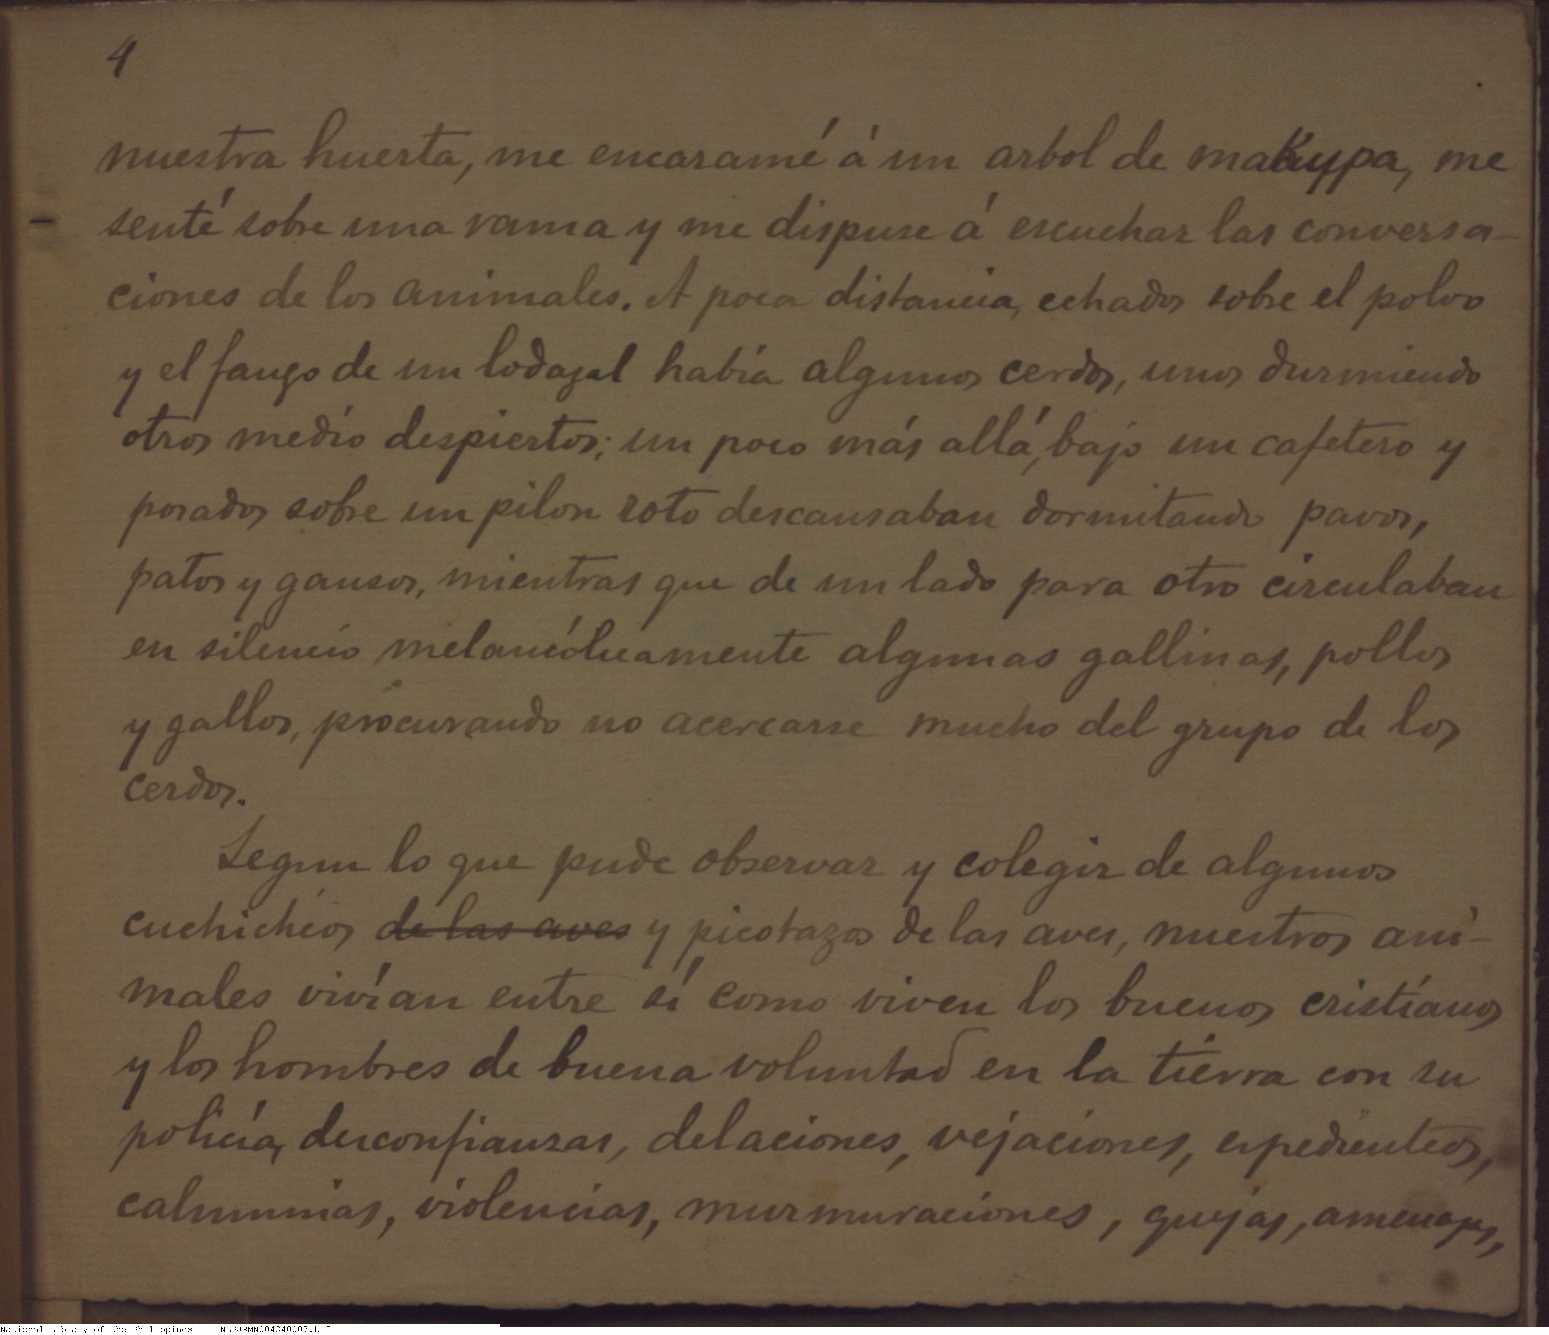 4
nuestra huerta, me encaramé á un arbol de makupa, me
senté sobre una rama y me dispuse á escuchar las conversa-
ciones de los animales. A poca distancia, echados sobre el polvo
y el fango de un lodazal había algunos cerdos, unos durmiendo
otros medio despiertos; un poco más allá, bajo un cafetero y
posados sobre un pilon roto descansaban dormitando pavos,
patos y gansos, mientras que de un lado para otro circulaban
en silencio melancólicamente algunas gallinas, pollos
y gallos, procurando no acercarse mucho del grupo de los
cerdos.
Segun lo que pude observar y colegir de algunos
cuchicheos de las aves y picotazos de las aves, nuestros ani-
males vivían entre sí como viven los buenos cristianos
y los hombres de buena voluntad en la tierra con su
policía, desconfianzas, delaciones, vejaciones, espedienteos,
calumnias, violencias, murmuraciones, quejas, amenazas,
National Library of the Philippines